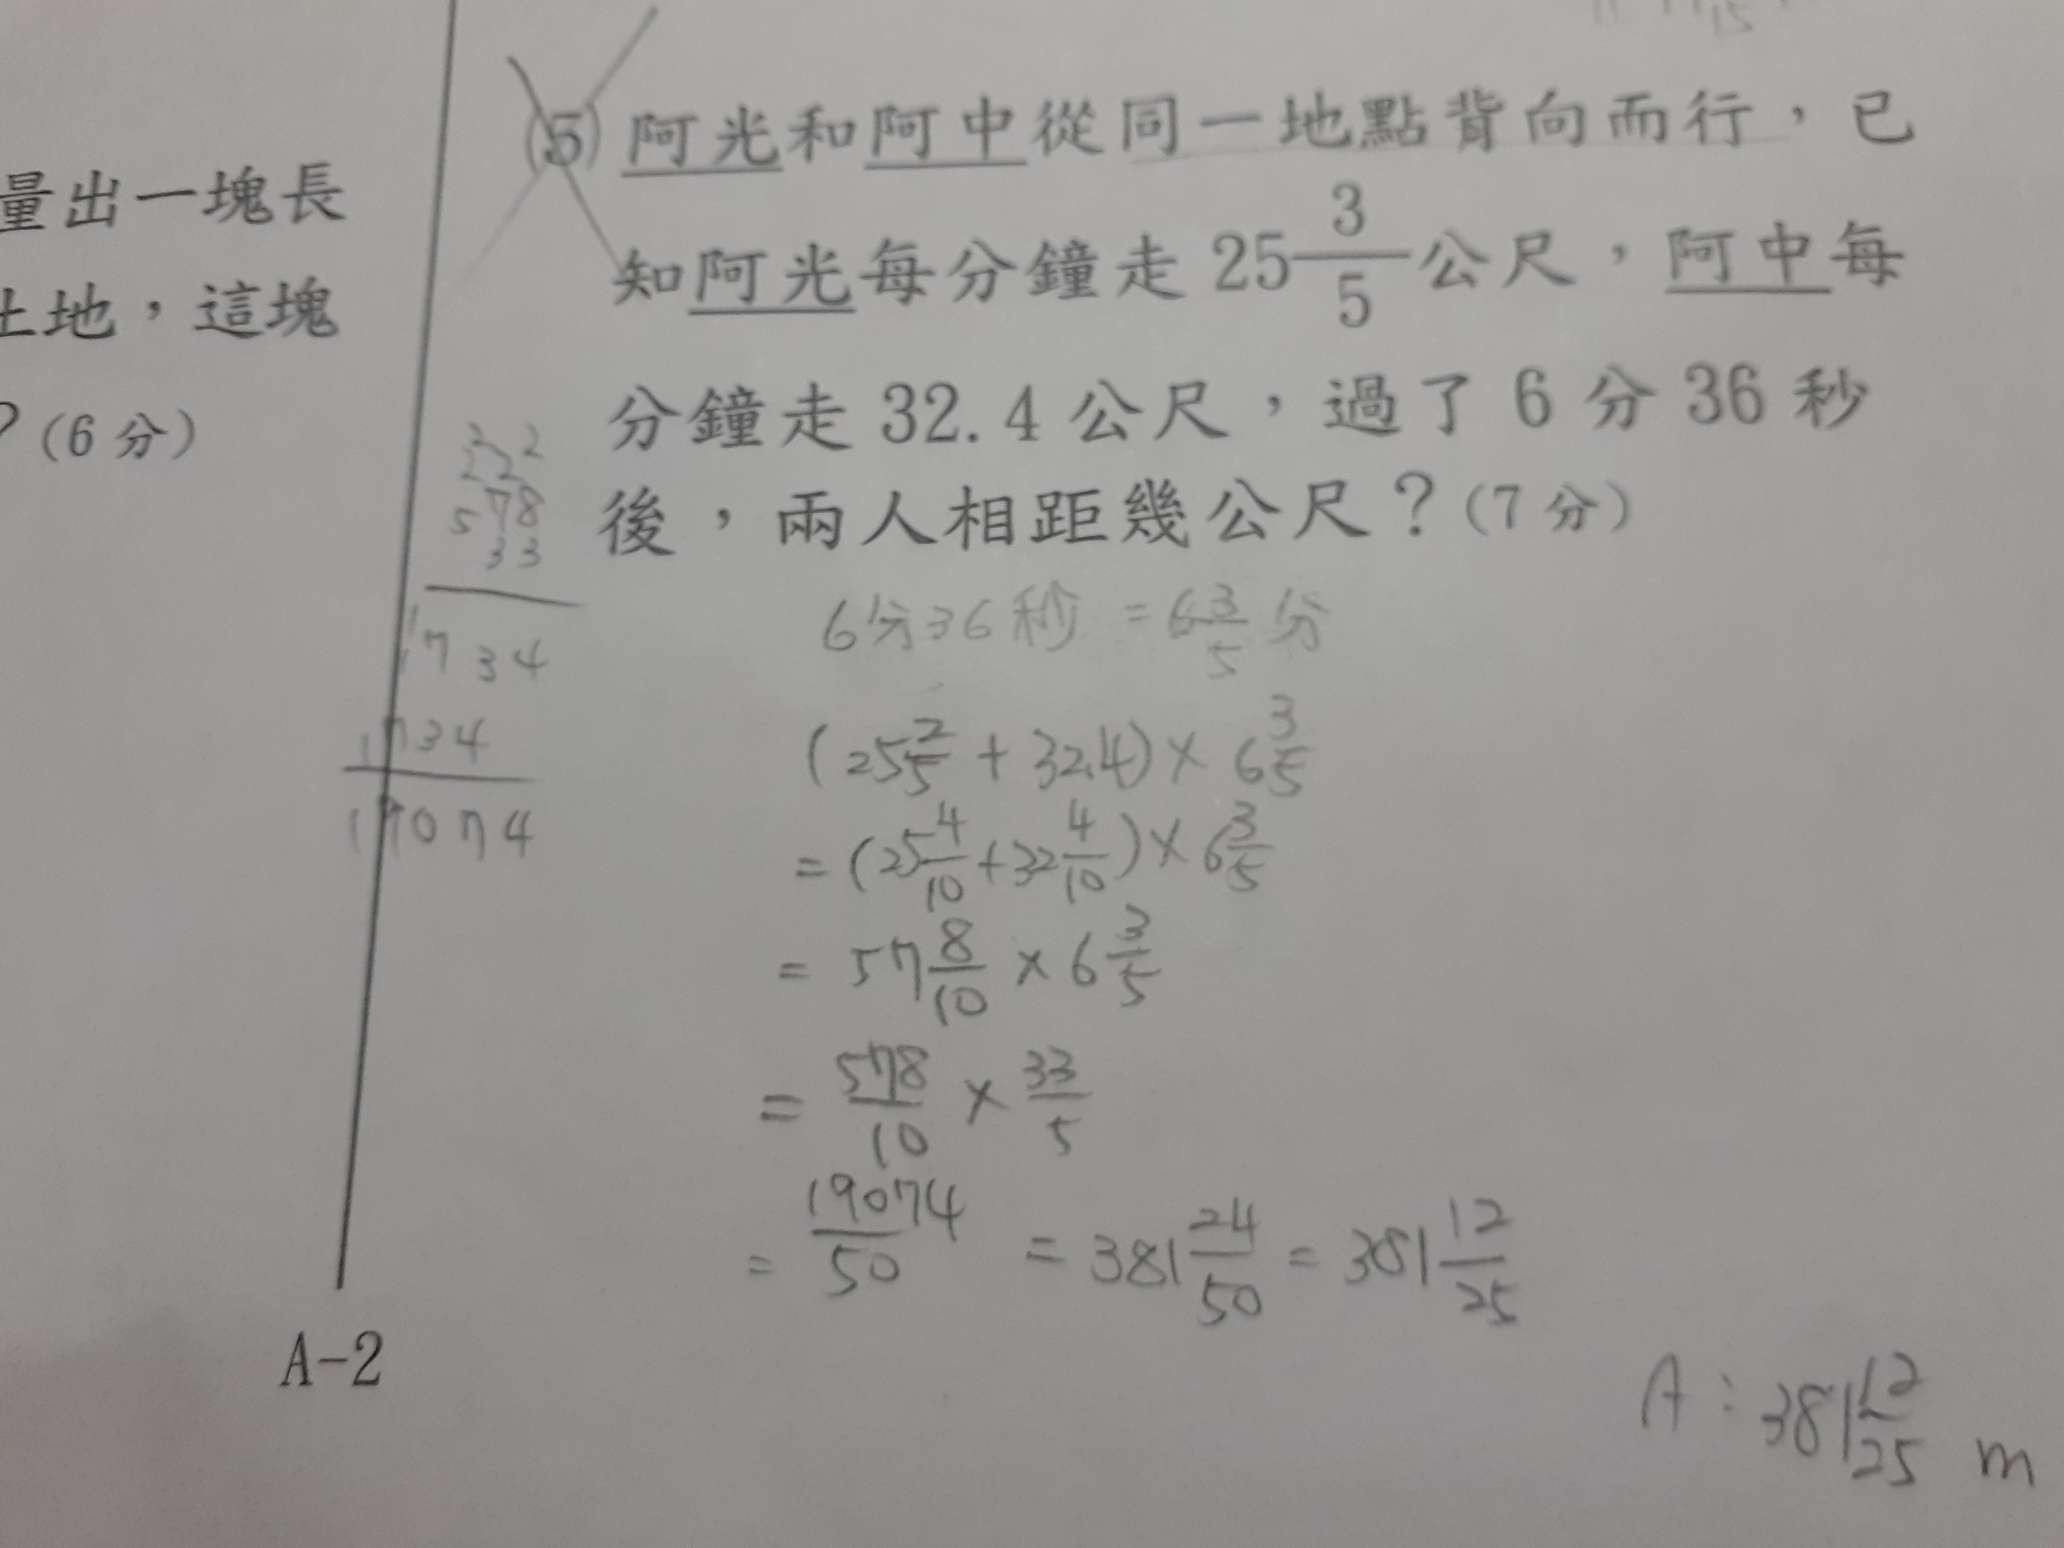 量出一塊長
土地，這塊
？(6分)
(5) 阿光和阿中從同一地點背向而行，已
知阿光每分鐘走 25 3/5 公尺，阿中每
分鐘走 32.4 公尺，過了 6 分 36 秒
後，兩人相距幾公尺？(7分)
578
33
1734
1734
19074
6分36秒 = 6 3/5 分
(25 2/5 + 32.4) × 6 3/5
= (25 4/10 + 32 4/10) × 6 3/5
= 57 8/10 × 6 3/5
= 578/10 × 33/5
= 19074/50 = 381 24/50 = 381 12/25
A : 381 12/25 m
A-2